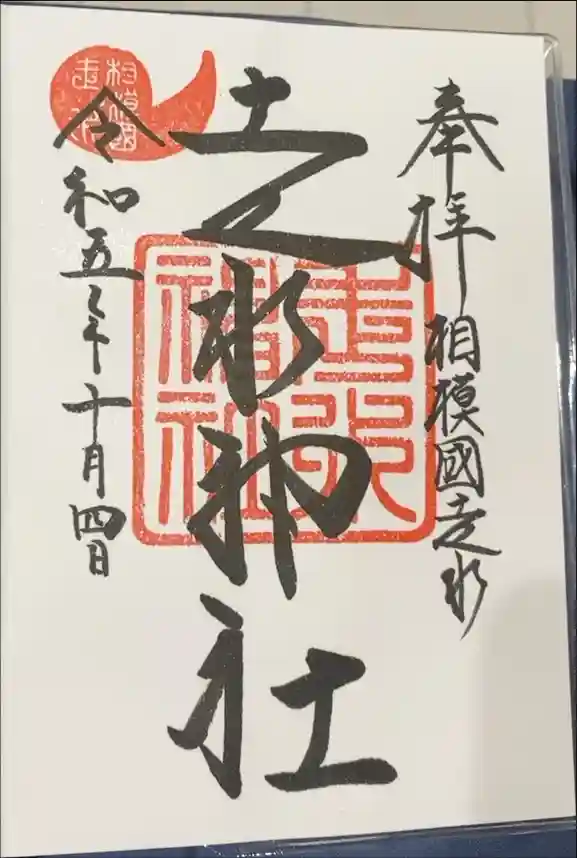 奉拝
相模國走水
走水神社
令和五年十月四日
走水神社
相模國走水